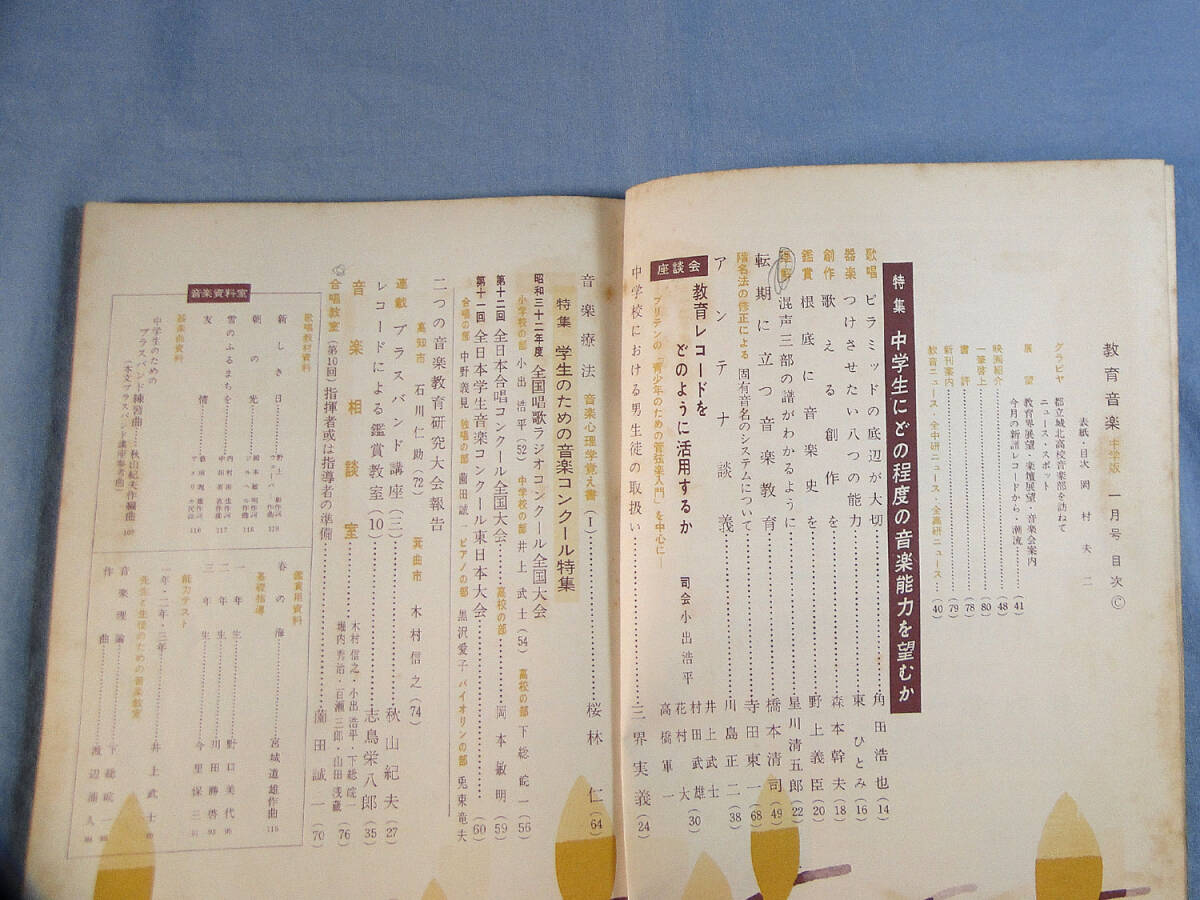 教育音楽 中学版 一月号 目次 ©
表紙・目次 岡村夫二
グラビヤ 都立城北高校音楽部を訪ねて
ニュース・スポット
展望 教育界展望・楽壇展望・音楽会案内
今月の新譜レコードから・潮流……(41)
映画紹介……(48)
一筆啓上……(80)
書評……(78)
新刊案内……(79)
教育ニュース・全中研ニュース・全高研ニュース……(40)
特集 中学生にどの程度の音楽能力を望むか
歌唱 ピラミッドの底辺が大切……角田浩也(14)
器楽 つけさせたい八つの能力……東ひとみ(16)
創作 歌える創作を……森本幹夫(18)
鑑賞 根底に音楽史を……野上義臣(20)
混声三部の譜がわかるように……星川清五郎(22)
転期に立つ音楽教育……橋本清司(49)
階名法の修正による 固有音名のシステムについて……寺田東一(68)
アンテナ談義……川島正二(38)
座談会 教育レコードをどのように活用するか
ブリテンの「青少年のための管弦楽入門」を中心に―
司会 小出浩平
井上武士
村田武雄
花村大
高橋軍一
(30)
中学校における男生徒の取扱い……三界実義(24)
音楽療法 音楽心理学覚え書(Ⅰ)……桜林仁(64)
特集 学生のための音楽コンクール特集
昭和三十二年度 全国唱歌ラジオコンクール全国大会
小学校の部 小出浩平(52) 中学校の部 井上武士(54) 高校の部 下総皖一(56)
第十二回 全日本合唱コンクール全国大会……高校の部……岡本敏明(59)
第十一回 全日本学生音楽コンクール東日本大会……(60)
合唱の部 中野義見 独唱の部 薗田誠一 ピアノの部 黒沢愛子 バイオリンの部 兎束竜夫
二つの音楽教育研究大会報告
高知市 石川仁助(72) 箕曲市 木村信之(74)
連載 ブラスバンド講座(三)……秋山紀夫(27)
レコードによる鑑賞教室(10)……志鳥栄八郎(35)
音楽相談室……木村信之・小出浩平・下総皖一
堀内秀治・百瀬三郎・山田浅蔵(76)
合唱教室(第10回)指揮者或は指導者の準備……薗田誠一(70)
音楽資料室
歌唱教材資料
新しき日
朝の光
雪のふるまちを
友情
器楽曲資料
中学生のための
ブラスバンド練習曲……秋山紀夫作編曲
(本文ブラスバンド講座参考曲)
鑑賞用資料
春の海……宮城道雄作曲
基礎指導
一年生……野口美代
二年生……川田勝啓
三年生……今里保三
能力テスト
一年・二年・三年……井上武士
先生と生徒のための音楽教室
音楽理論……下総皖一
作曲……渡辺浦人